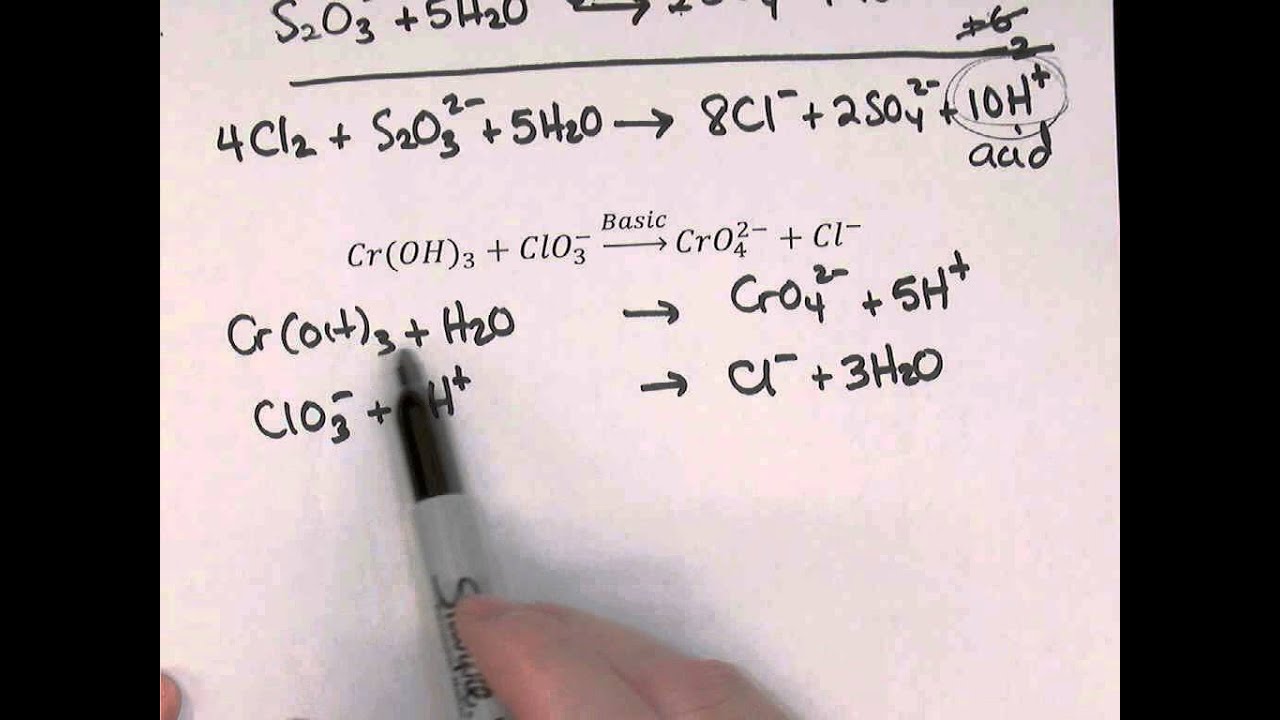 S₂O₃ + 5H₂O
+6
4Cl₂ + S₂O₃²⁻ + 5H₂O → 8Cl⁻ + 2SO₄²⁻ + 10H⁺
acid
Cr(OH)₃ + ClO₃⁻ Basic → CrO₄²⁻ + Cl⁻
Cr(OH)₃ + H₂O → CrO₄²⁻ + 5H⁺
ClO₃⁻ + H⁺ → Cl⁻ + 3H₂O
Sharpie